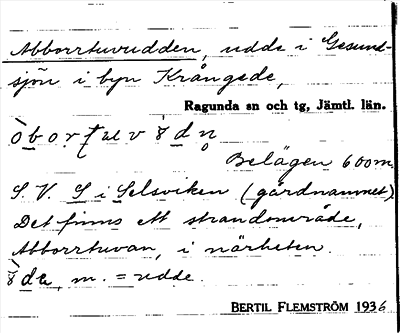 Abborrtuvudden, udde i Gesund-
sjön i byn Krångede,
Ragunda sn och tg, Jämtl. län.
Belägen 600m.
S. V. S i Selsviken (gårdnamnet)
Det finns ett strandområde,
Abborrtuvan, i närheten.
m. = udde.
BERTIL FLEMSTRÖM 1936